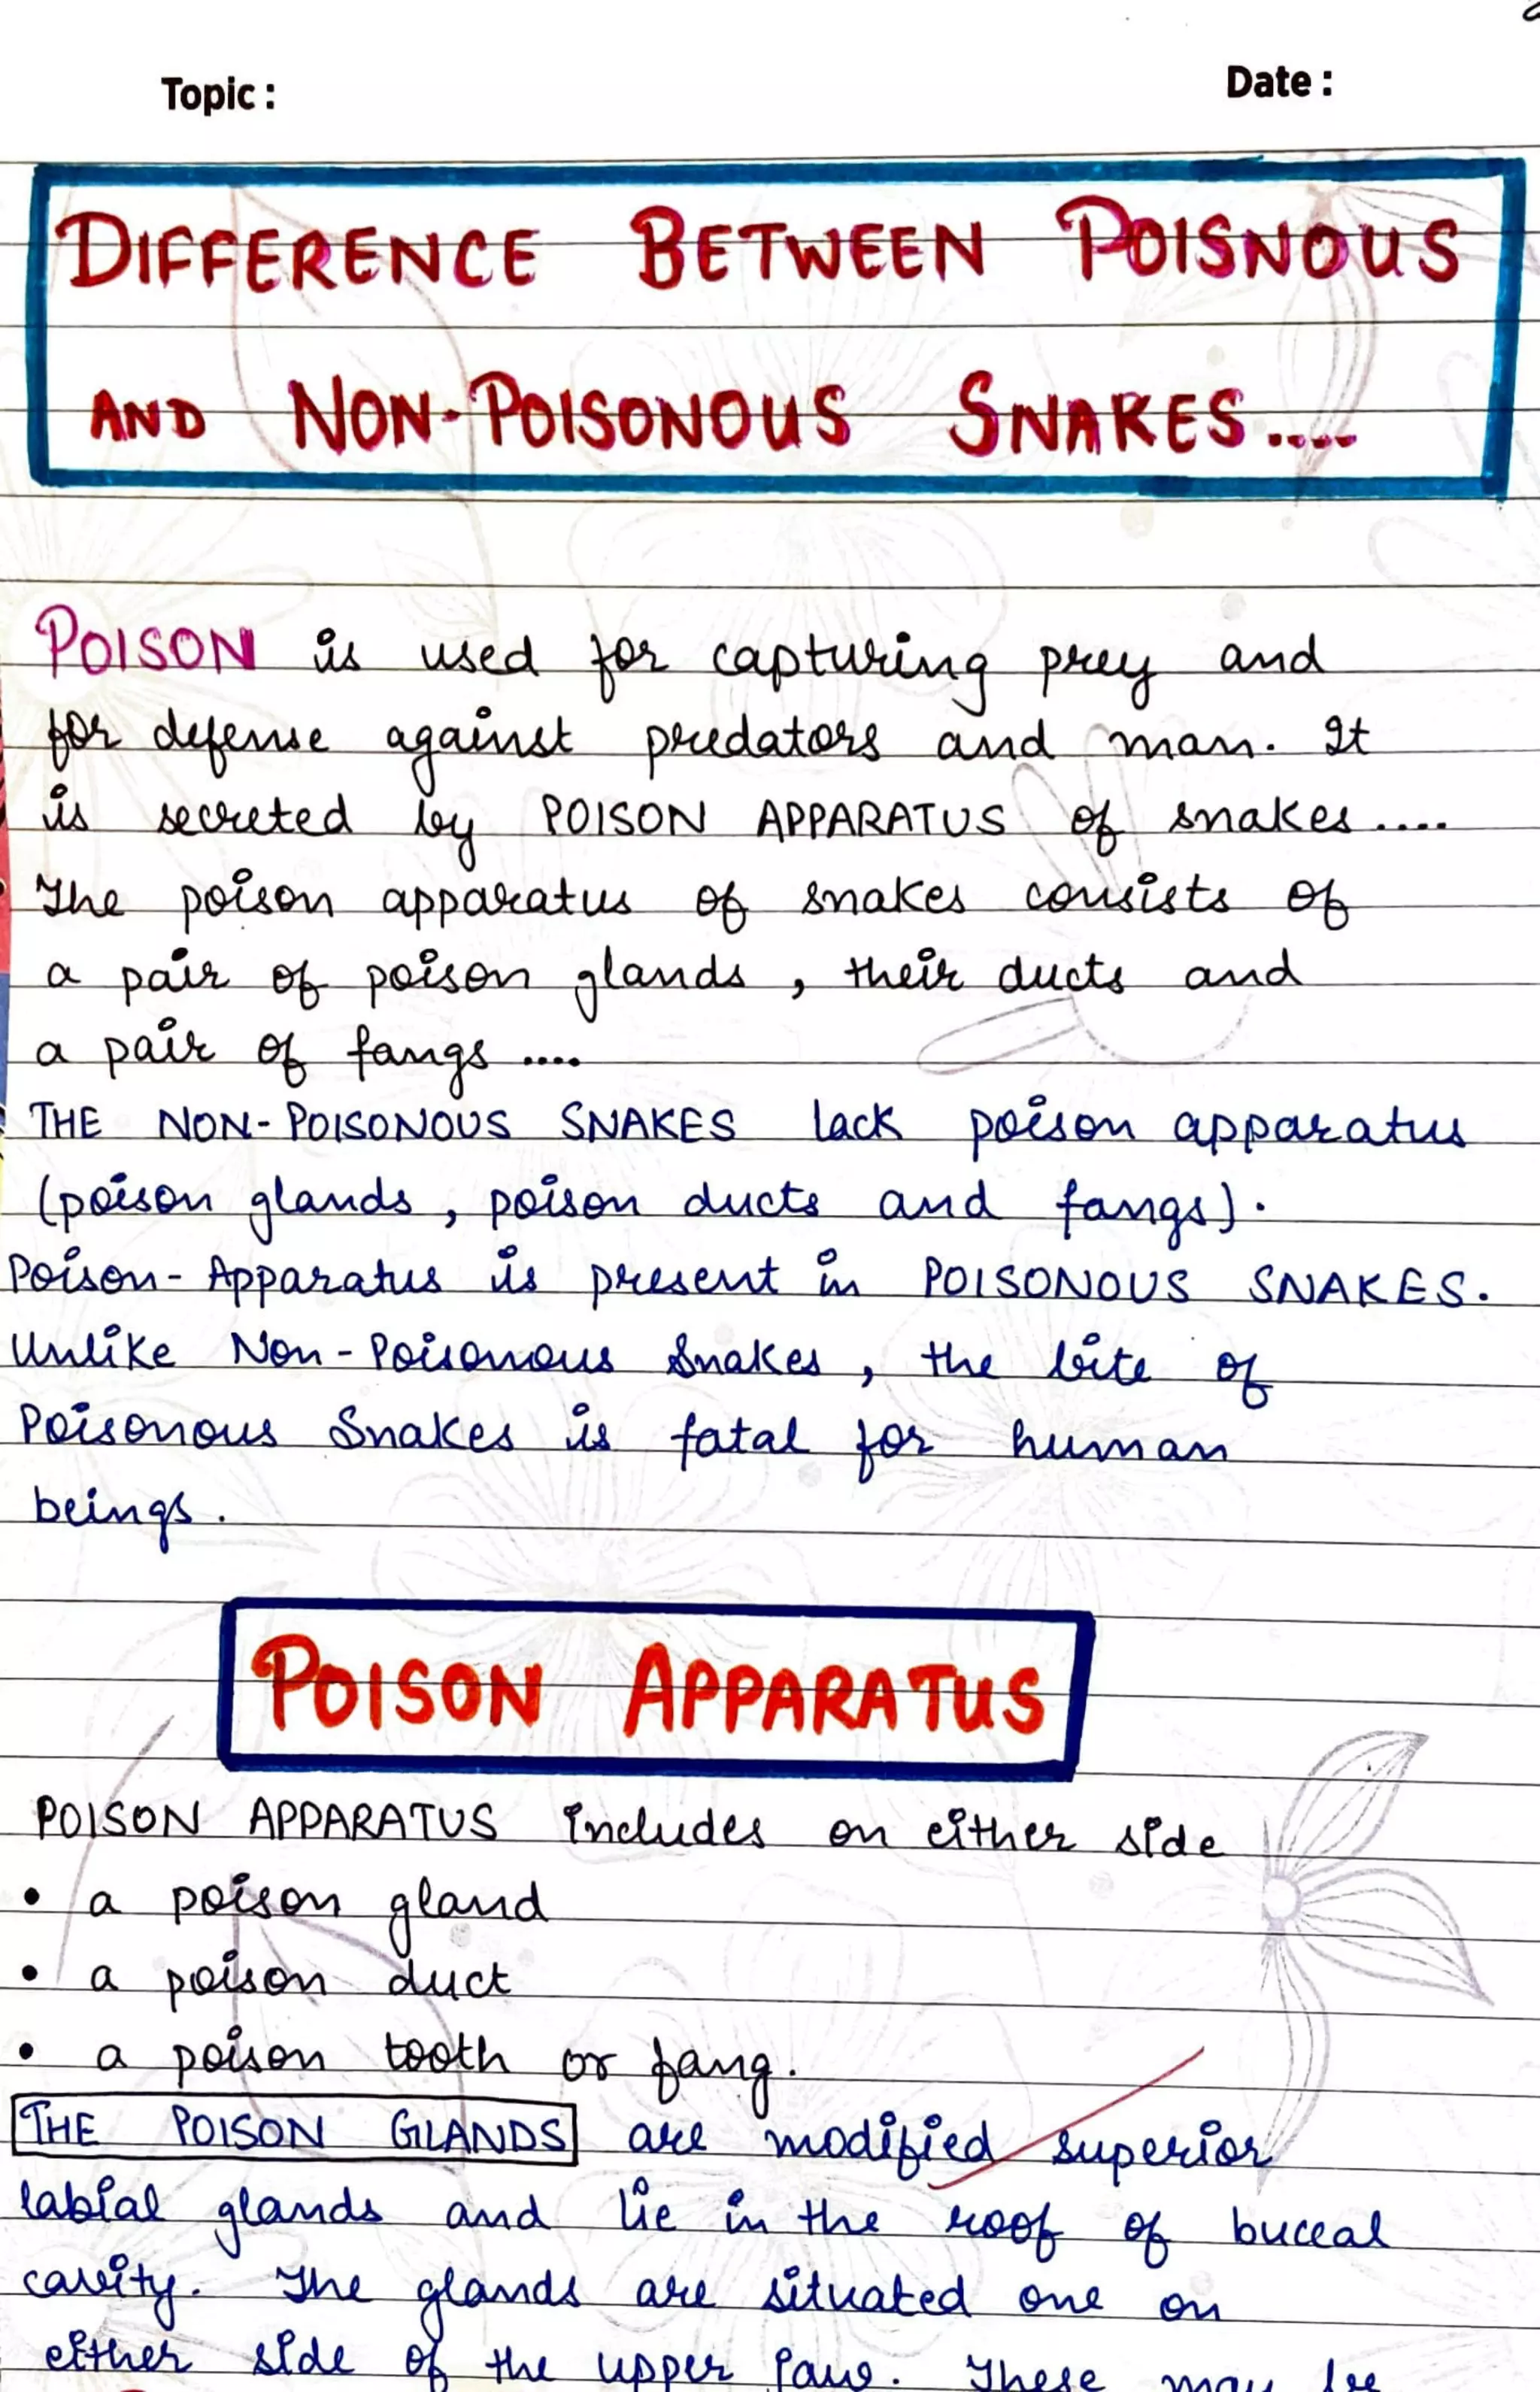 Topic :
Date :
DIFFERENCE BETWEEN POISNOUS
AND NON-POISONOUS SNAKES....
POISON is used for capturing prey and
for defense against predators and man. It
is secreted by POISON APPARATUS of snakes....
The poison apparatus of snakes consists of
a pair of poison glands, their ducts and
a pair of fangs ....
THE NON-POISONOUS SNAKES lack poison apparatus
(poison glands, poison ducts and fangs).
Poison-Apparatus is present in POISONOUS SNAKES.
Unlike Non-Poisonous Snakes, the bite of
Poisonous Snakes is fatal for human
beings.
POISON APPARATUS
POISON APPARATUS includes on either side
• a poison gland
• a poison duct
• a poison tooth or fang.
THE POISON GLANDS are modified superior
labial glands and lie in the roof of buccal
cavity. The glands are situated one on
either side of the upper jaw. These may be